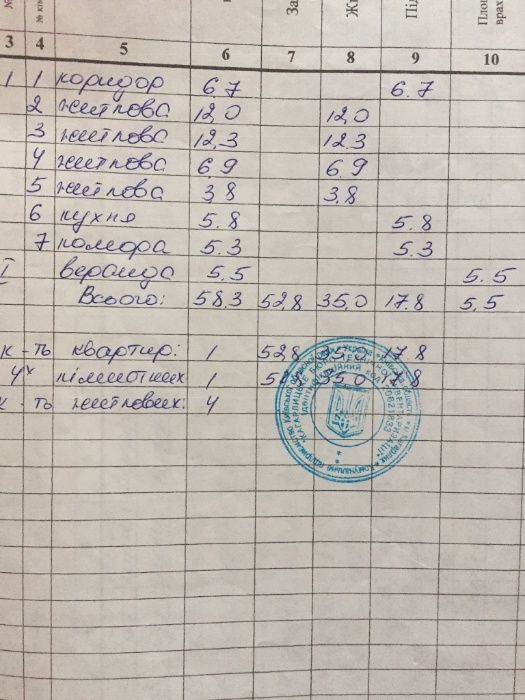 № За Жи Піл Площ врах
3 4 5 6 7 8 9 10
1 1 коридор 6,7 6.7
2 житлова 12,0 12,0
3 житлова 12,3 12.3
4 житлова 6.9 6.9
5 житлова 3,8 3,8
6 кухня 5.8 5.8
7 комора 5.3 5.3
I веранда 5.5 5.5
Всього: 58,3 52,8 35,0 17.8 5,5
к-ть квартир: 1 52,8 35,0 17.8
4х кімнатних 1 52,8 35.0 17.8
к-ть житлових: 4